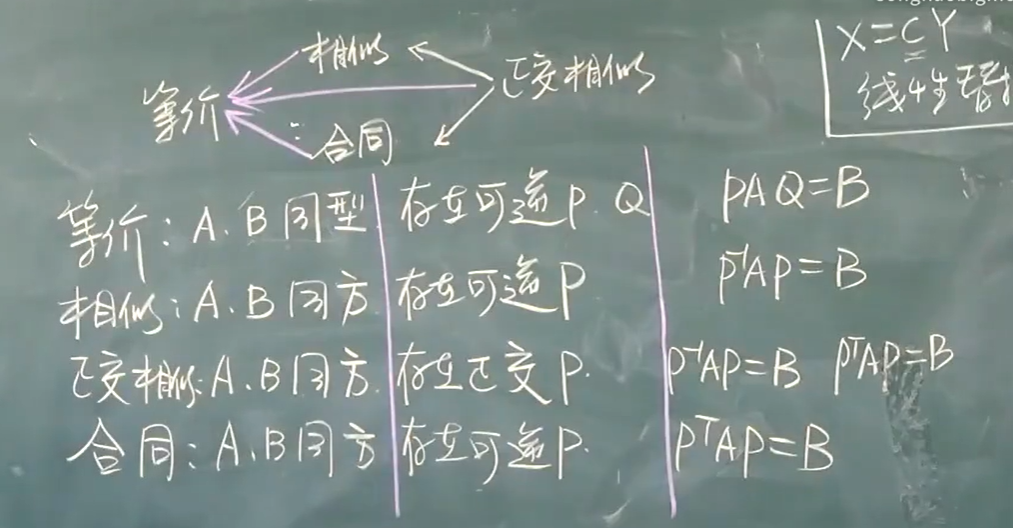 X=CY
线性替
相似
正交相似
等价
合同
等价:A.B同型 存在可逆P.Q PAQ=B
相似:A.B同方 存在可逆P P⁻¹AP=B
正交相似:A.B同方. 存在正交P. P⁻¹AP=B PᵀAP=B
合同:A.B同方 存在可逆P. PᵀAP=B